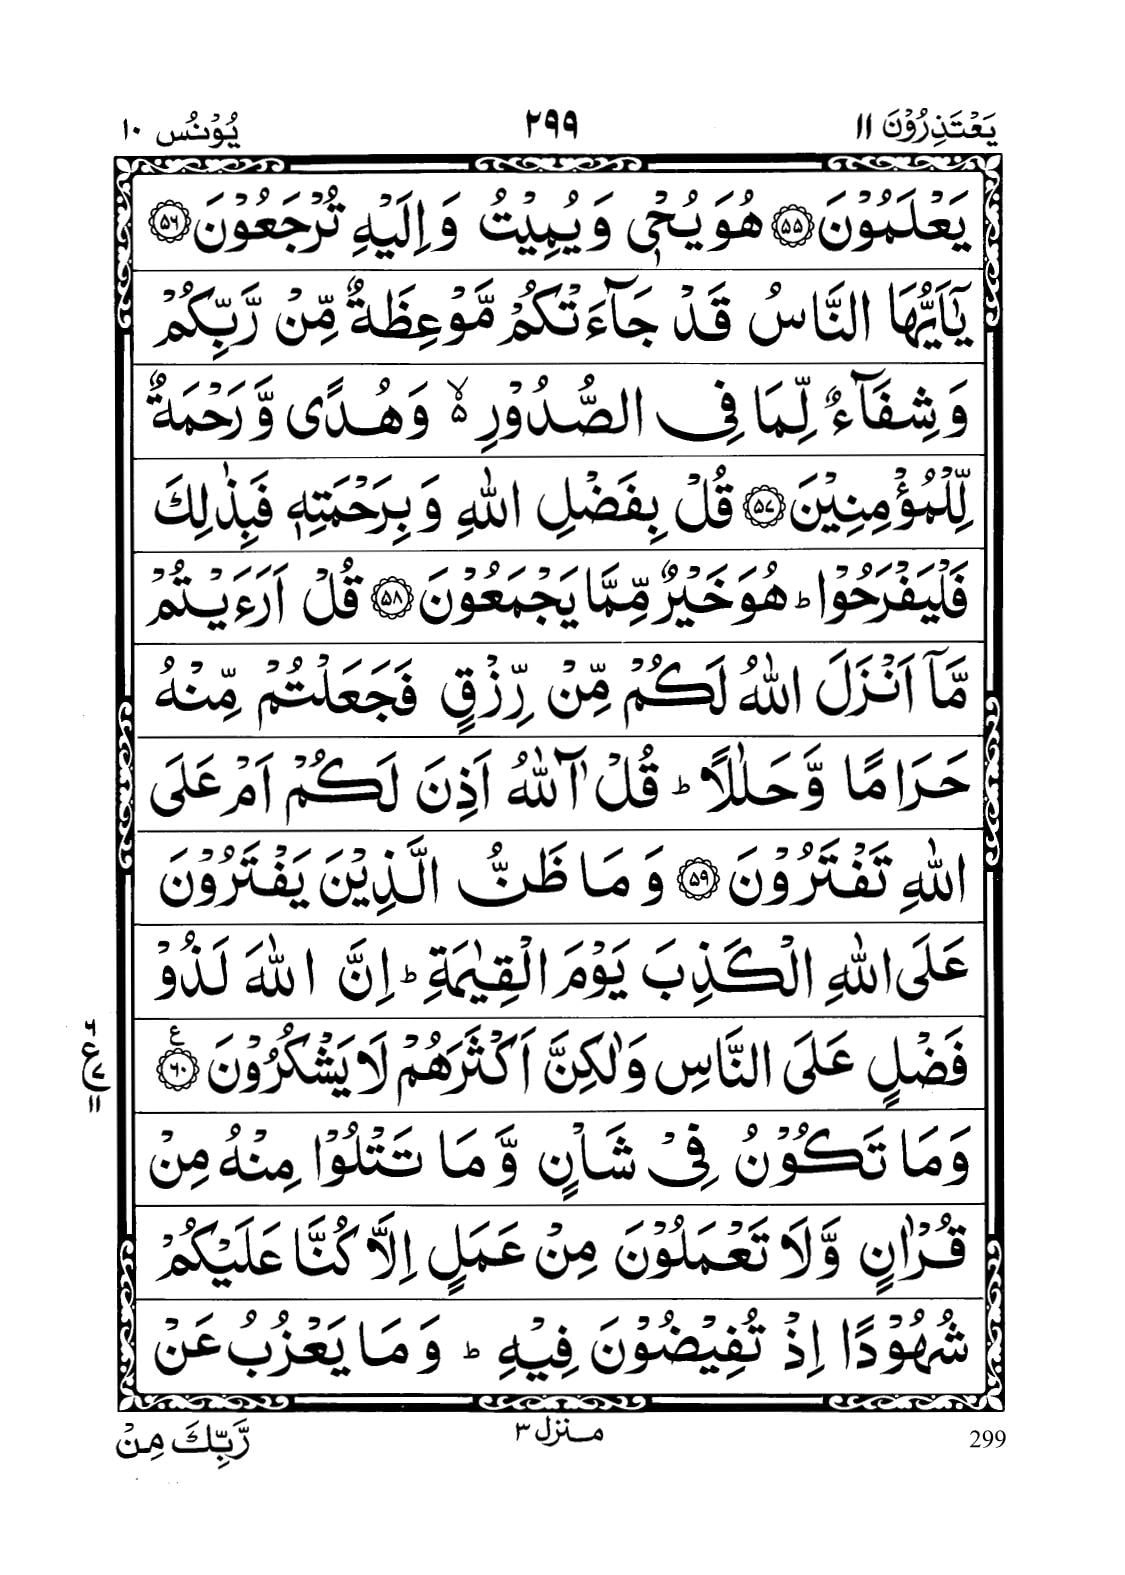 يَعْتَذِرُوْنَ ١١
٢٩٩
يُوْنُس ١٠
يَعْلَمُوْنَ ۝٥٥ هُوَ يُحْيٖ وَيُمِيْتُ وَاِلَيْهِ تُرْجَعُوْنَ ۝٥٦
يٰۤاَيُّهَا النَّاسُ قَدْ جَآءَتْكُمْ مَّوْعِظَةٌ مِّنْ رَّبِّكُمْ
وَشِفَآءٌ لِّمَا فِى الصُّدُوْرِ ۙ۬ وَهُدًى وَّرَحْمَةٌ
لِّلْمُؤْمِنِيْنَ ۝٥٧ قُلْ بِفَضْلِ اللّٰهِ وَبِرَحْمَتِهٖ فَبِذٰلِكَ
فَلْيَفْرَحُوْا ؕ هُوَ خَيْرٌ مِّمَّا يَجْمَعُوْنَ ۝٥٨ قُلْ اَرَءَيْتُمْ
مَّاۤ اَنْزَلَ اللّٰهُ لَكُمْ مِّنْ رِّزْقٍ فَجَعَلْتُمْ مِّنْهُ
حَرَامًا وَّحَلٰلًا ؕ قُلْ آٰللّٰهُ اَذِنَ لَكُمْ اَمْ عَلَى
اللّٰهِ تَفْتَرُوْنَ ۝٥٩ وَمَا ظَنُّ الَّذِيْنَ يَفْتَرُوْنَ
عَلَى اللّٰهِ الْكَذِبَ يَوْمَ الْقِيٰمَةِ ؕ اِنَّ اللّٰهَ لَذُوْ
فَضْلٍ عَلَى النَّاسِ وَلٰكِنَّ اَكْثَرَهُمْ لَا يَشْكُرُوْنَ ۝٦٠ ع
٦ ع ٧ ١١
وَمَا تَكُوْنُ فِىْ شَاْنٍ وَّمَا تَتْلُوْا مِنْهُ مِنْ
قُرْاٰنٍ وَّلَا تَعْمَلُوْنَ مِنْ عَمَلٍ اِلَّا كُنَّا عَلَيْكُمْ
شُهُوْدًا اِذْ تُفِيْضُوْنَ فِيْهِ ؕ وَمَا يَعْزُبُ عَنْ
299
منزل ٣
رَّبِّكَ مِنْ